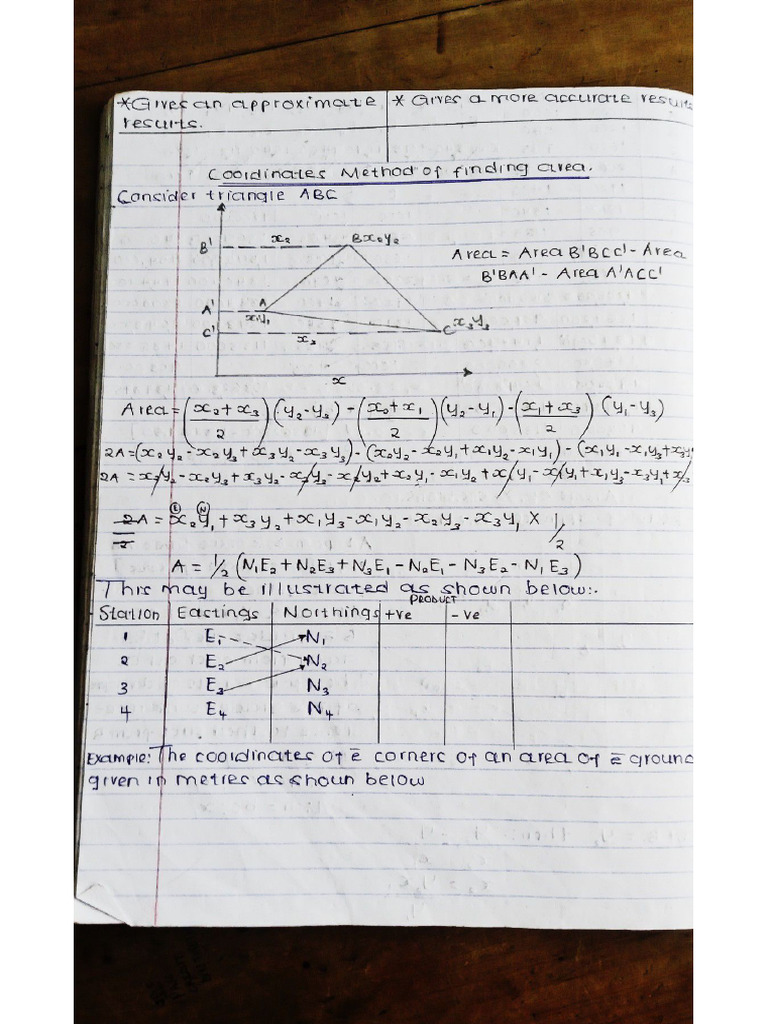 *Gives an approximate results. | * Gives a more accurate results
Coordinates Method of finding area.
Consider triangle ABC
B' x₂ B x₂y₂
Area = Area B'BCC' - Area
B'BAA' - Area A'ACC'
A' A
x₁y₁
C' x₃ C x₃y₃
x
Area = ((x₂ + x₃)/2) (y₂ - y₃) - ((x₂ + x₁)/2) (y₂ - y₁) - ((x₁ + x₃)/2) (y₁ - y₃)
2A = (x₂y₂ - x₂y₃ + x₃y₂ - x₃y₃) - (x₂y₂ - x₂y₁ + x₁y₂ - x₁y₁) - (x₁y₁ - x₁y₃ + x₃y
2A = x₂y₂ - x₂y₃ + x₃y₂ - x₃y₃ - x₂y₂ + x₂y₁ - x₁y₂ + x₁y₁ - x₁y₁ + x₁y₃ - x₃y₁ + x₃
E N
2A/2 = x₂y₁ + x₃y₂ + x₁y₃ - x₁y₂ - x₂y₃ - x₃y₁ × 1/2
A = 1/2 (N₁E₂ + N₂E₃ + N₃E₁ - N₂E₁ - N₃E₂ - N₁E₃)
This may be illustrated as shown below:-
PRODUCT
Station | Eastings | Northings | +ve | -ve
1 E₁ N₁
2 E₂ N₂
3 E₃ N₃
4 E₄ N₄
Example: The coordinates of ē corners of an area of ē ground
given in metres as shown below